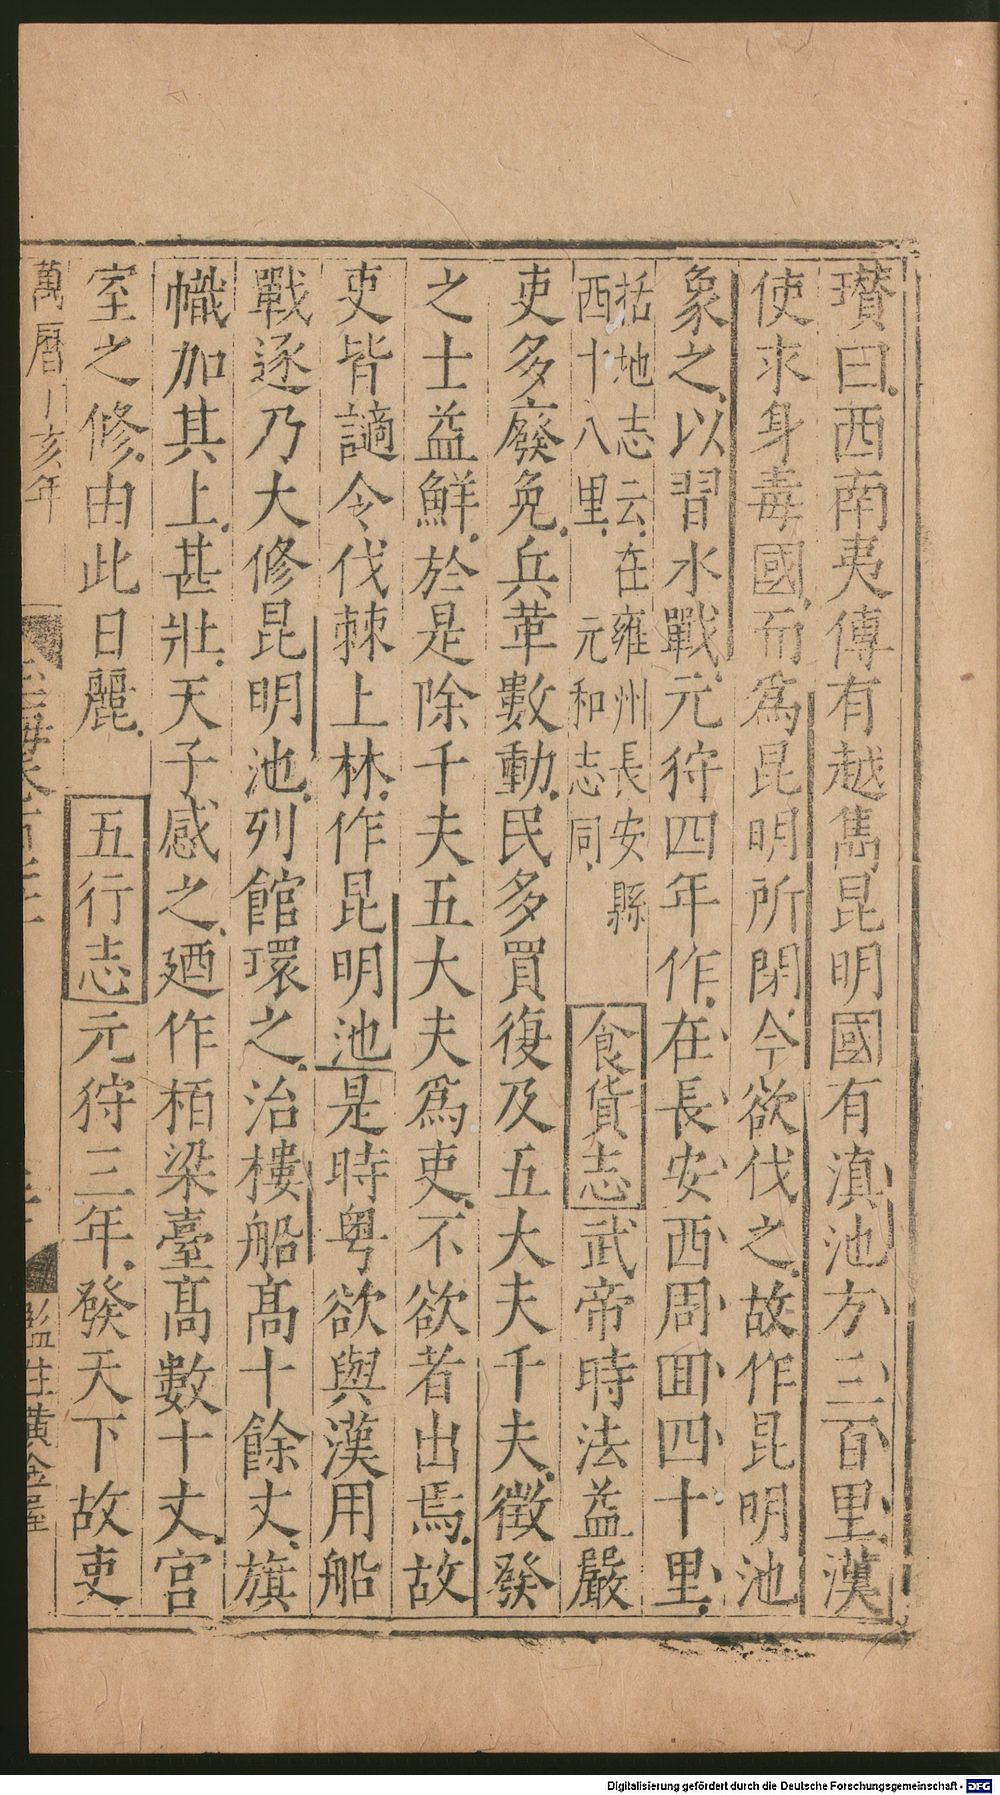 瓉曰西南夷傳有越雋昆明國有滇池方三百里漢
使求身毒國而爲昆明所閉今欲伐之故作昆明池
象之以習水戰元狩四年作在長安西周囬四十里
括地志云在雍州長安縣
西十八里元和志同
食貨志武帝時法益嚴
吏多廢免兵革數動民多買復及五大夫千夫徵發
之士益鮮於是除千夫五大夫爲吏不欲者出焉故
吏皆讁令伐棘上林作昆明池是時粤欲與漢用船
戰逐乃大修昆明池列館環之治樓船高十餘丈旗
幟加其上甚壯天子感之廼作栢梁臺高數十丈宮
室之修由此日麗五行志元狩三年發天下故吏
萬曆丁亥年
監生黃金屋
Digitalisierung gefördert durch die Deutsche Forschungsgemeinschaft - DFG